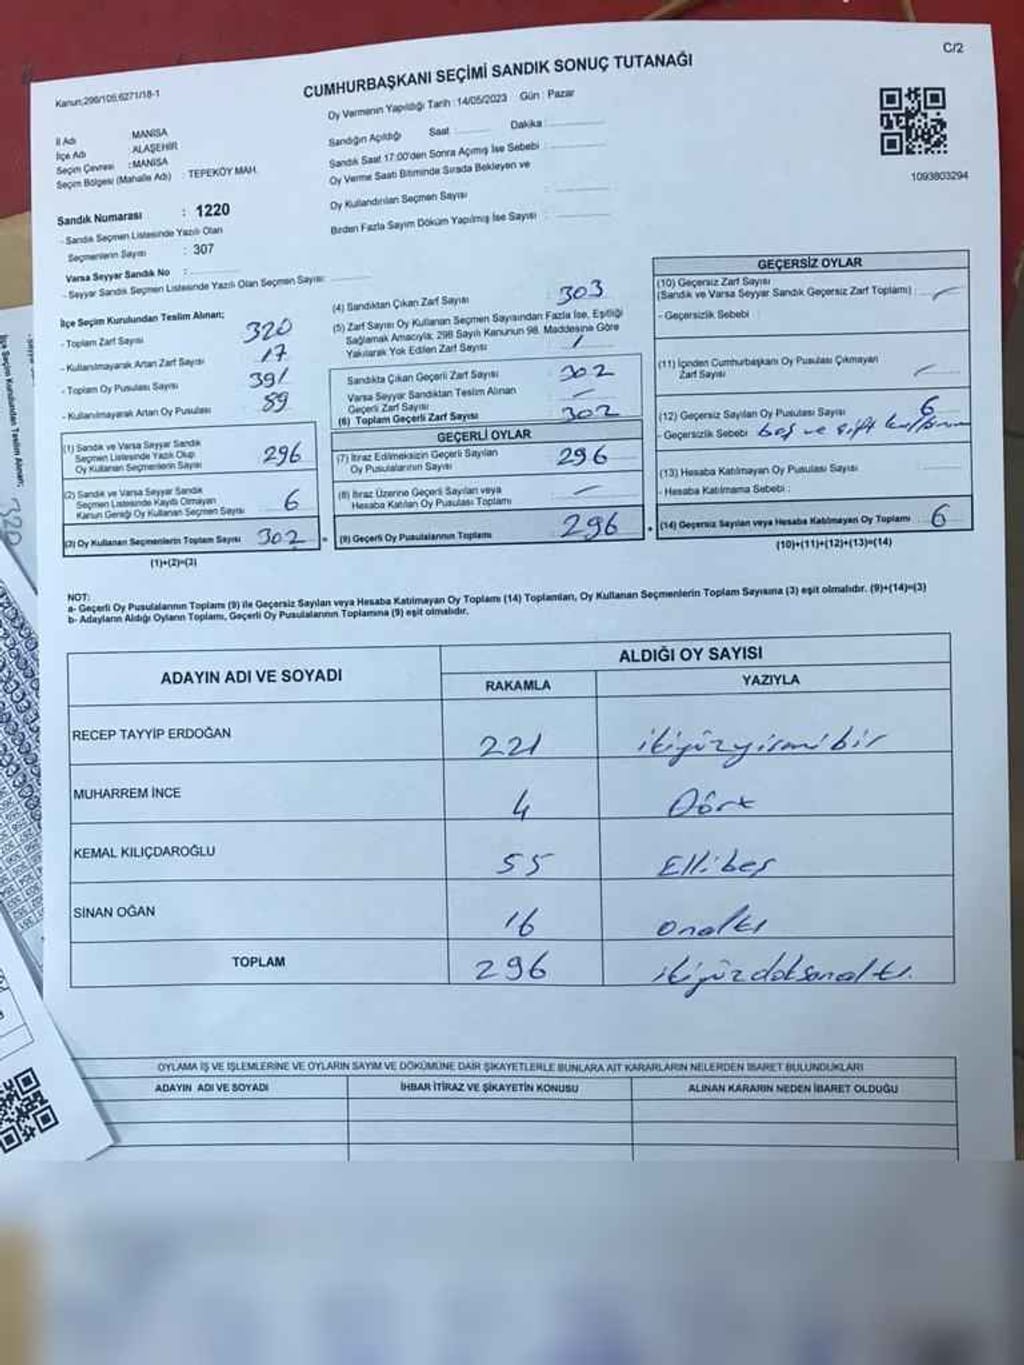 C/2
CUMHURBAŞKANI SEÇİMİ SANDIK SONUÇ TUTANAĞI
Kanun;298/105;6271/18-1
Oy Vermenin Yapıldığı Tarih : 14/05/2023 Gün : Pazar
İl Adı MANİSA
İlçe Adı ALAŞEHİR
Seçim Çevresi : MANİSA
Seçim Bölgesi (Mahalle Adı) : TEPEKÖY MAH.
Sandık Numarası : 1220
- Sandık Seçmen Listesinde Yazılı Olan
Seçmenlerin Sayısı : 307
Varsa Seyyar Sandık No :
- Seyyar Sandık Seçmen Listesinde Yazılı Olan Seçmen Sayısı:
Sandığın Açıldığı Saat : Dakika :
Sandık Saat 17:00'den Sonra Açımış İse Sebebi :
Oy Verme Saati Bitiminde Sırada Bekleyen ve
Oy Kullandırılan Seçmen Sayısı :
Birden Fazla Sayım Döküm Yapılmış İse Sayısı :
1093803294
İlçe Seçim Kurulundan Teslim Alınan;
- Toplam Zarf Sayısı 320
- Kullanılmayarak Artan Zarf Sayısı 17
- Toplam Oy Pusulası Sayısı 391
- Kullanılmayarak Artan Oy Pusulası 89
(1) Sandık ve Varsa Seyyar Sandık
Seçmen Listesinde Yazılı Olup
Oy Kullanan Seçmenlerin Sayısı 296
(2) Sandık ve Varsa Seyyar Sandık
Seçmen Listesinde Kayıtlı Olmayan
Kanun Gereği Oy Kullanan Seçmen Sayısı 6
(3) Oy Kullanan Seçmenlerin Toplam Sayısı 302
(1)+(2)=(3)
(4) Sandıktan Çıkan Zarf Sayısı : 303
(5) Zarf Sayısı Oy Kullanan Seçmen Sayısından Fazla İse, Eşitliği
Sağlamak Amacıyla; 298 Sayılı Kanunun 98. Maddesine Göre
Yakılarak Yok Edilen Zarf Sayısı 1
Sandıkta Çıkan Geçerli Zarf Sayısı : 302
Varsa Seyyar Sandıktan Teslim Alınan
Geçerli Zarf Sayısı :
(6) Toplam Geçerli Zarf Sayısı 302
GEÇERLİ OYLAR
(7) İtiraz Edilmeksizin Geçerli Sayılan
Oy Pusulalarının Sayısı 296
(8) İtiraz Üzerine Geçerli Sayılan veya
Hesaba Katılan Oy Pusulası Toplamı
(9) Geçerli Oy Pusulalarının Toplamı 296
GEÇERSİZ OYLAR
(10) Geçersiz Zarf Sayısı
(Sandık ve Varsa Seyyar Sandık Geçersiz Zarf Toplamı)
- Geçersizlik Sebebi :
(11) İçinden Cumhurbaşkanı Oy Pusulası Çıkmayan
Zarf Sayısı
(12) Geçersiz Sayılan Oy Pusulası Sayısı 6
- Geçersizlik Sebebi boş ve çift
(13) Hesaba Katılmayan Oy Pusulası Sayısı
- Hesaba Katılmama Sebebi :
(14) Geçersiz Sayılan veya Hesaba Katılmayan Oy Toplamı 6
(10)+(11)+(12)+(13)=(14)
NOT:
a- Geçerli Oy Pusulalarının Toplamı (9) ile Geçersiz Sayılan veya Hesaba Katılmayan Oy Toplamı (14) Toplamları, Oy Kullanan Seçmenlerin Toplam Sayısına (3) eşit olmalıdır. (9)+(14)=(3)
b- Adayların Aldığı Oyların Toplamı, Geçerli Oy Pusulalarının Toplamına (9) eşit olmalıdır.
ADAYIN ADI VE SOYADI ALDIĞI OY SAYISI
RAKAMLA YAZIYLA
RECEP TAYYİP ERDOĞAN 221 ikiyüzyirmibir
MUHARREM İNCE 4 Dört
KEMAL KILIÇDAROĞLU 55 Ellibeş
SİNAN OĞAN 16 onaltı
TOPLAM 296 ikiyüzdoksanaltı.
OYLAMA İŞ VE İŞLEMLERİNE VE OYLARIN SAYIM VE DÖKÜMÜNE DAİR ŞİKAYETLERLE BUNLARA AİT KARARLARIN NELERDEN İBARET BULUNDUKLARI
ADAYIN ADI VE SOYADI İHBAR İTİRAZ VE ŞİKAYETİN KONUSU ALINAN KARARIN NEDEN İBARET OLDUĞU
İlçe Seçim Kurulundan Teslim Alınan;
320